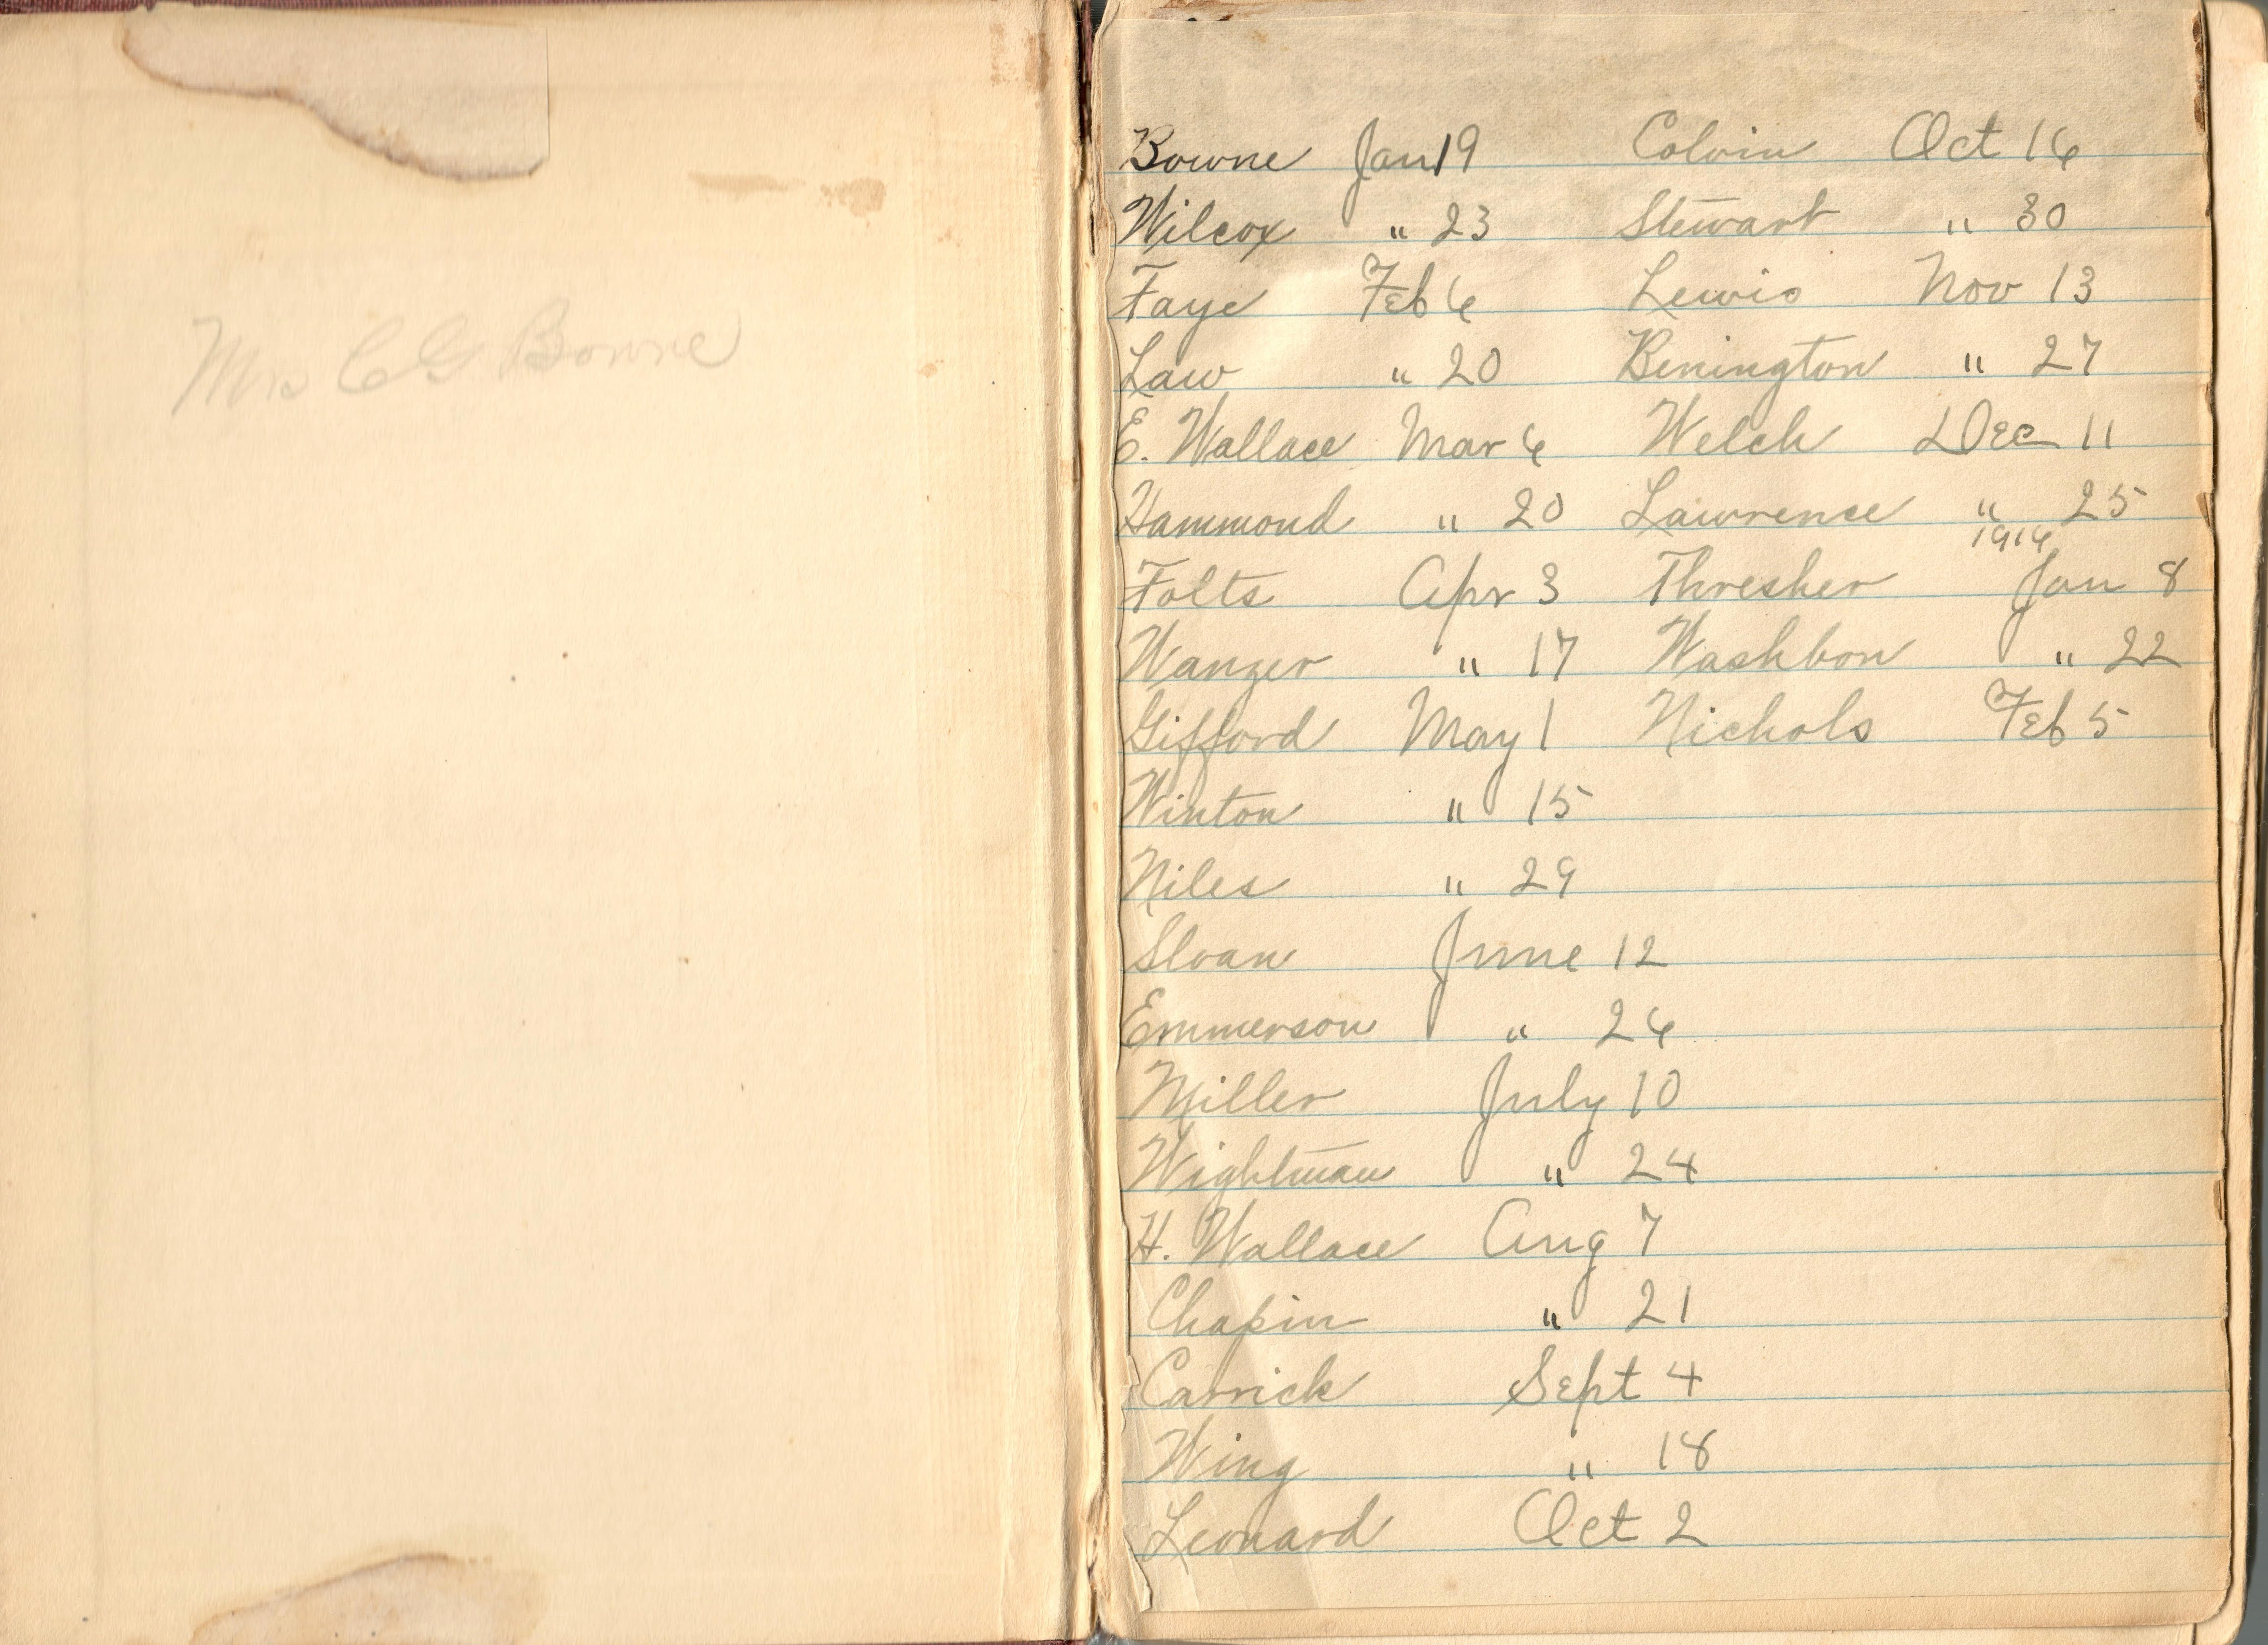 Mrs C G Bowne
Bowne Jan 19 Colvin Oct 16
Wilcox " 23 Stewart " 30
Faye Feb 6 Lewis Nov 13
Law " 20 Benington " 27
E. Wallace Mar 6 Welch Dec 11
Hammond " 20 Lawrence " 25
1916
Folts Apr 3 Thresher Jan 8
Wanzer " 17 Washbon " 22
Gifford May 1 Nichols Feb 5
Winton " 15
Niles " 29
Sloan June 12
Emmerson " 26
Miller July 10
Wightman " 24
H. Wallace Aug 7
Chapin " 21
Carrick Sept 4
Wing " 18
Leonard Oct 2